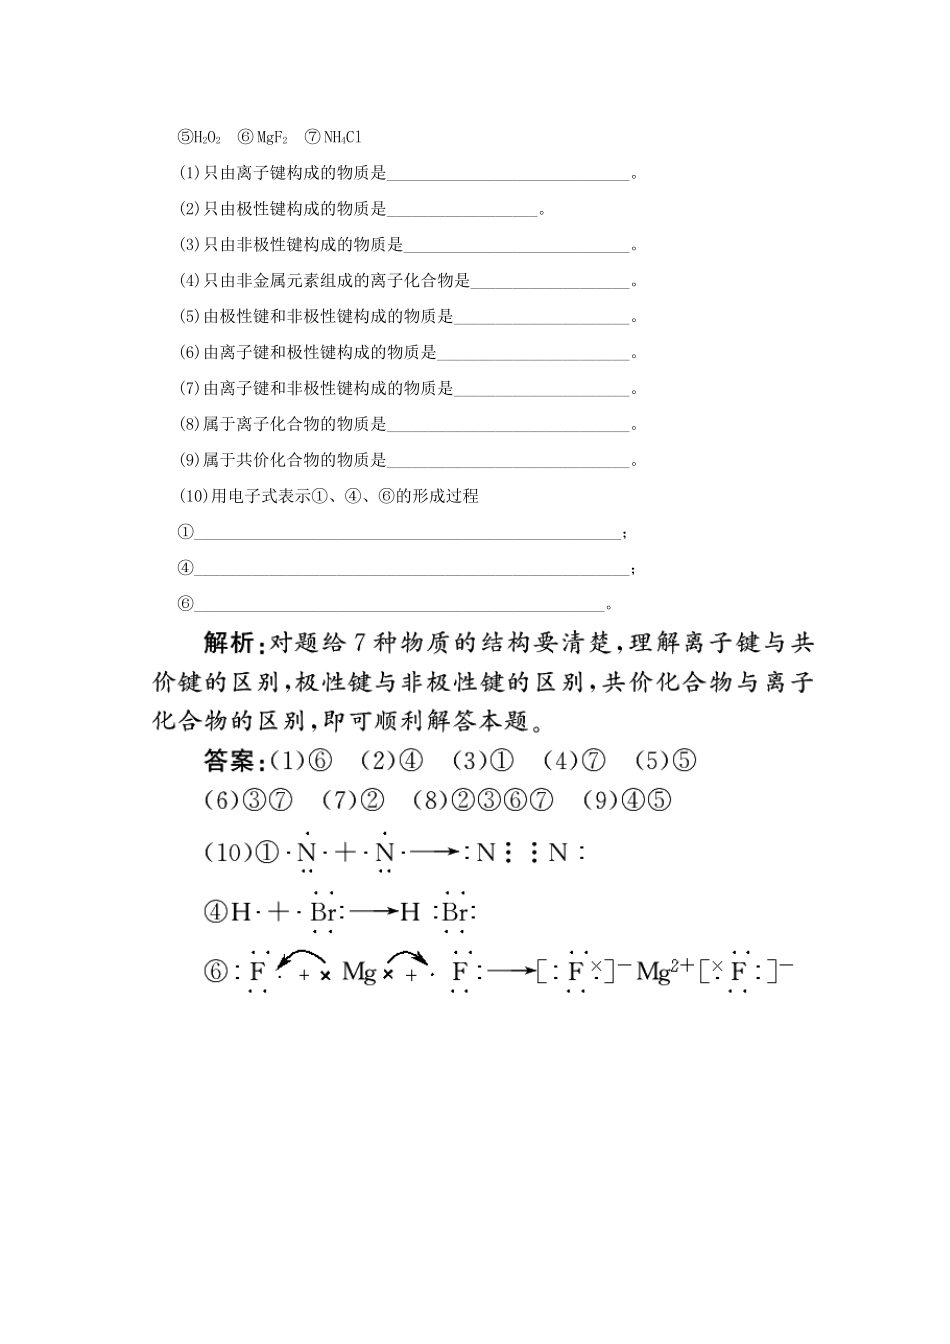 ⑤H₂O₂ ⑥MgF₂ ⑦NH₄Cl
(1)只由离子键构成的物质是____________________________。
(2)只由极性键构成的物质是_________________。
(3)只由非极性键构成的物质是__________________________。
(4)只由非金属元素组成的离子化合物是__________________。
(5)由极性键和非极性键构成的物质是____________________。
(6)由离子键和极性键构成的物质是______________________。
(7)由离子键和非极性键构成的物质是____________________。
(8)属于离子化合物的物质是____________________________。
(9)属于共价化合物的物质是____________________________。
(10)用电子式表示①、④、⑥的形成过程
①__________________________________________________；
④___________________________________________________；
⑥________________________________________________。
解析:对题给7种物质的结构要清楚,理解离子键与共
价键的区别,极性键与非极性键的区别,共价化合物与离子
化合物的区别,即可顺利解答本题。
答案:(1)⑥ (2)④ (3)① (4)⑦ (5)⑤
(6)③⑦ (7)② (8)②③⑥⑦ (9)④⑤
(10)①·N·+·N·⟶:N⋮⋮N:
④H·+·Br:⟶H:Br:
⑥:F:+×Mg×+·F:⟶[:F×:]⁻Mg²⁺[×:F:]⁻